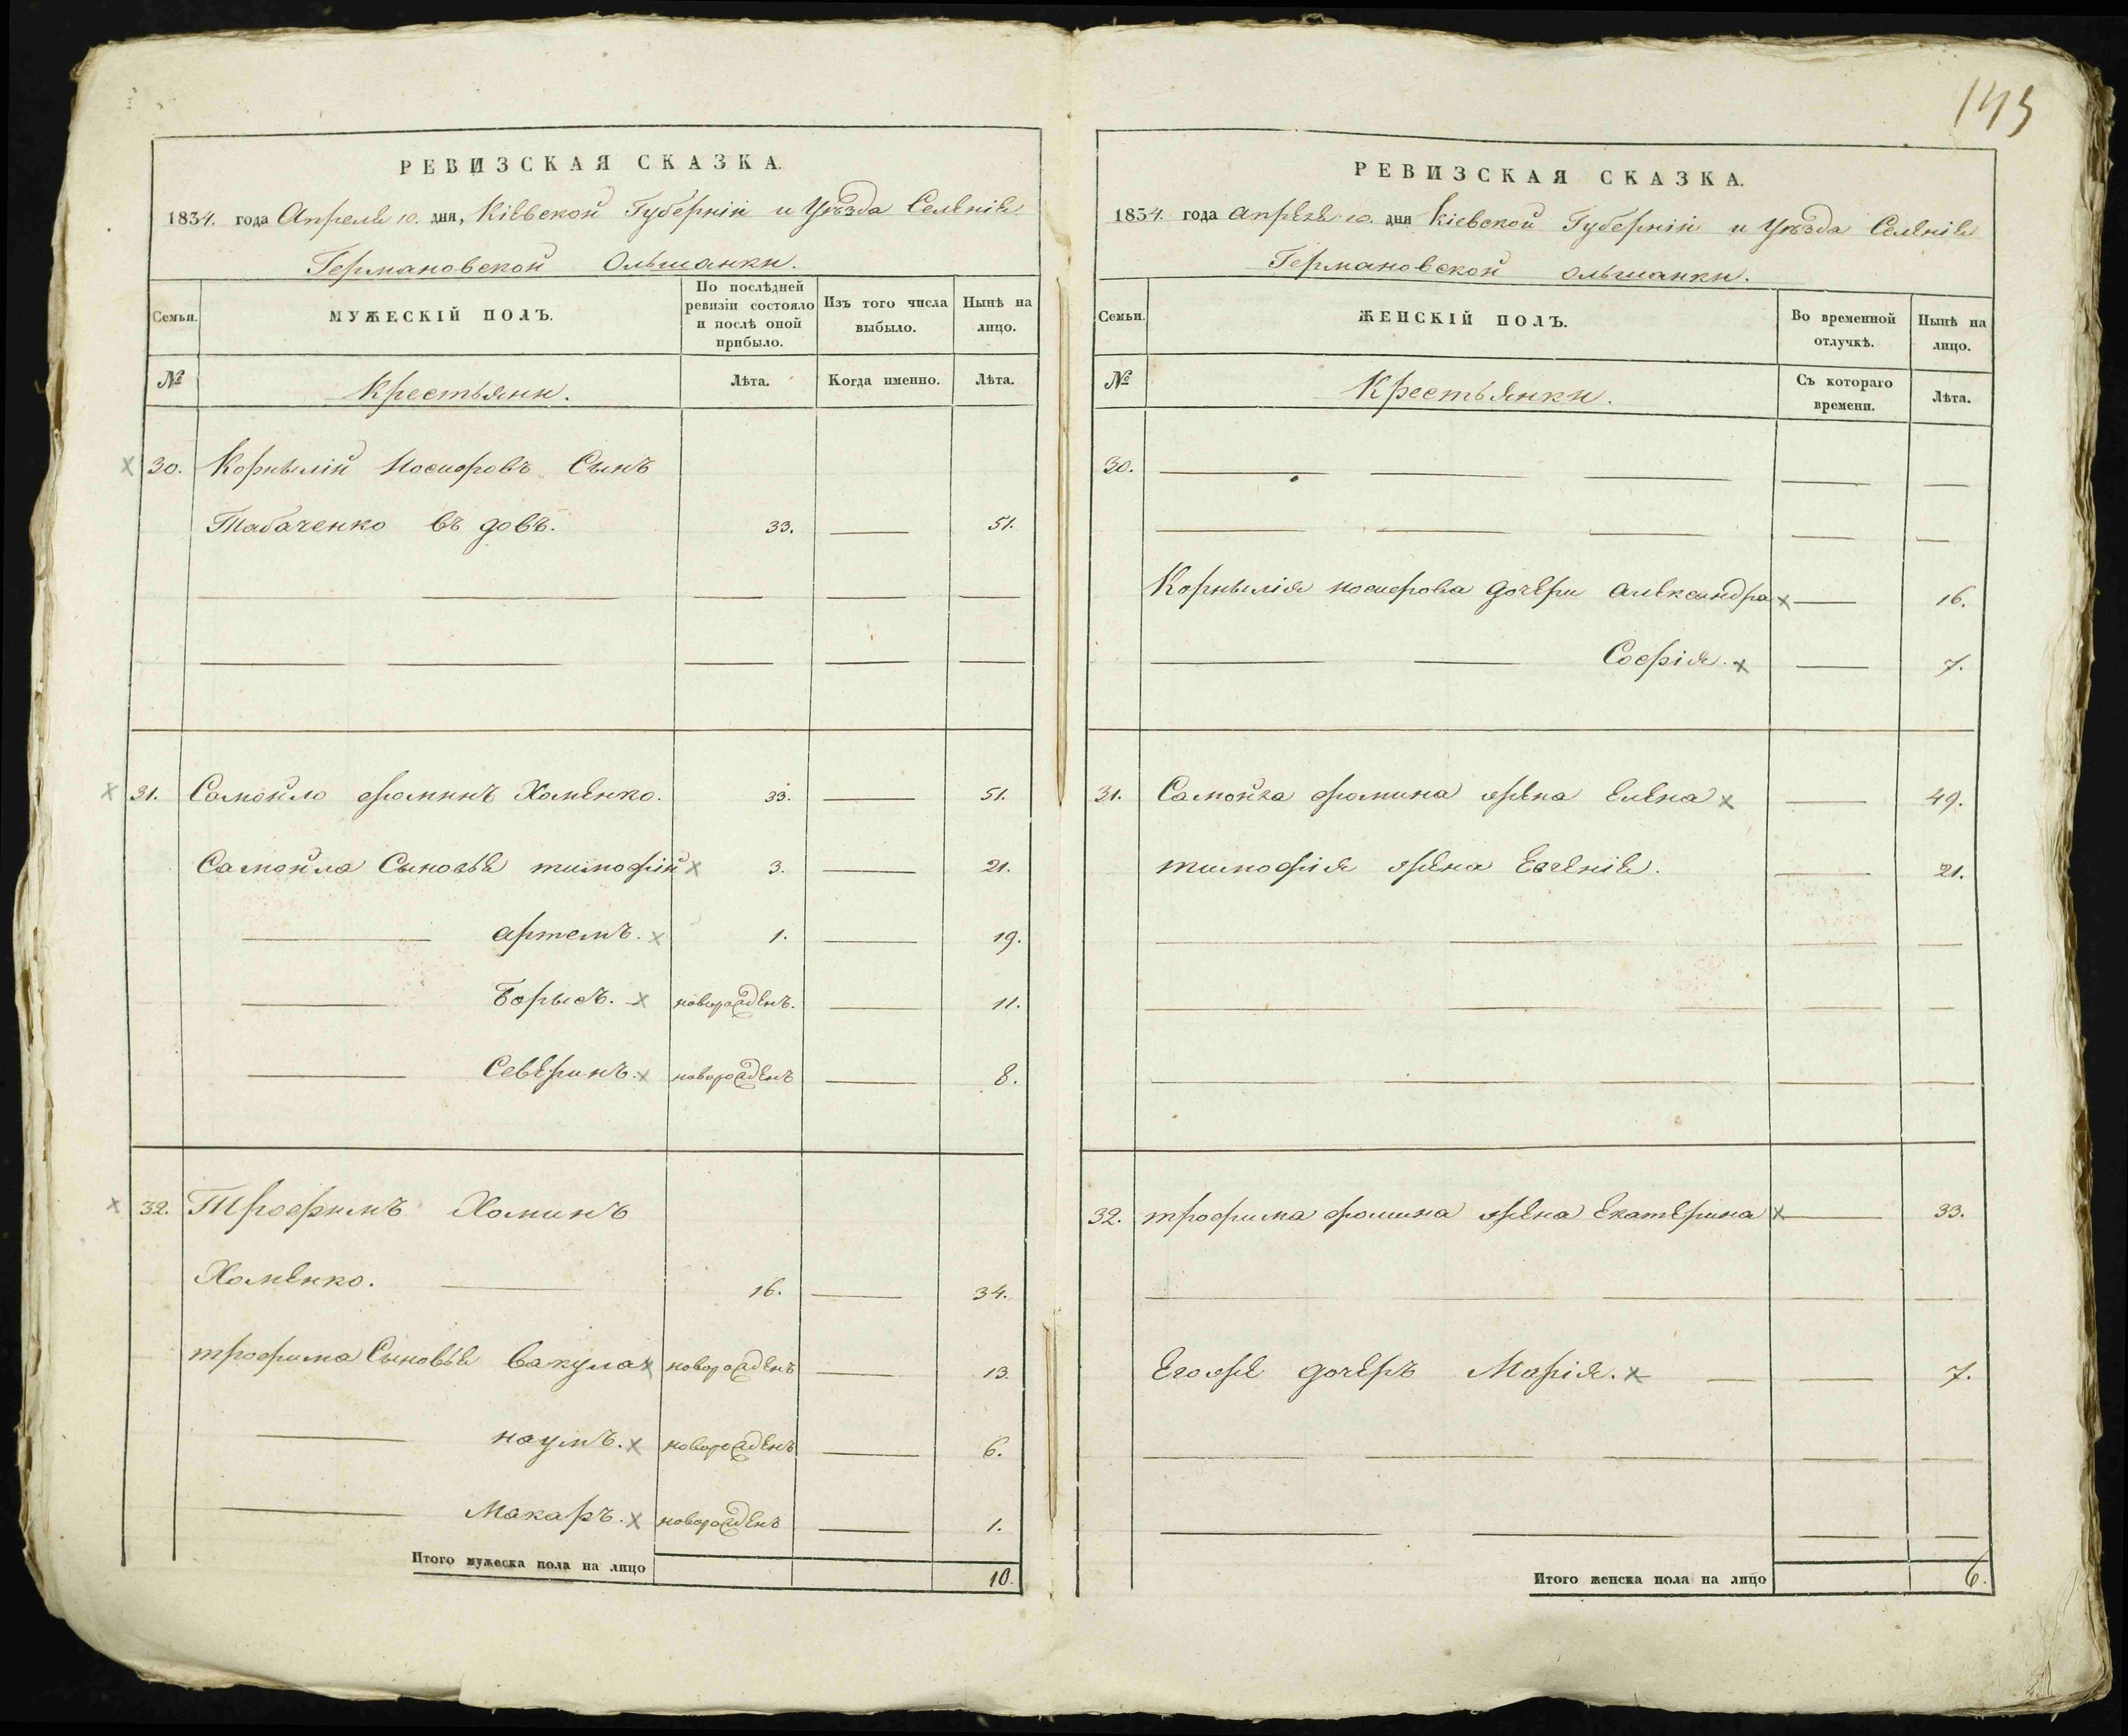 РЕВИЗСКАЯ СКАЗКА.
1834. года Апреля 10. дня, Кіевской Губерніи и Уѣзда Селенія
Германовской Ольшанки.
Семьи.
МУЖЕСКІЙ ПОЛЪ.
По послѣдней ревизіи состояло и послѣ оной прибыло.
Изъ того числа выбыло.
Нынѣ на лицо.
№
Крестьяни.
Лѣта.
Когда именно.
Лѣта.
30. Корнылій Сынъ
Табаченко въ довъ. 33. 51.
31. Самойло фоминъ Хоменко. 33. 51.
Самойла Сыновья тимофій 3. 21.
артемъ. 1. 19.
Борысъ. новорожденъ. 11.
Северинъ. новорожденъ 8.
32. Трофимъ Хоминъ
Хоменко. 16. 34.
трофима Сыновья вакула новорожденъ 13.
наумъ. новорожденъ 6.
Макаръ. новорожденъ 1.
Итого мужеска пола на лицо 10.
РЕВИЗСКАЯ СКАЗКА.
1834. года апреля 10. дня Кіевской Губерніи и Уѣзда Селенія
Германовской ольшанки.
Семьи.
ЖЕНСКІЙ ПОЛЪ.
Во временной отлучкѣ.
Нынѣ на лицо.
№
Крестьянки.
Съ котораго времени.
Лѣта.
30.
Корнылія дочери александра 16.
Софія. 7.
31. Самойла фомина жена Елена 49.
тимофія жена Евгенія. 21.
32. трофима фомина жена Екатерина 33.
Егоже дочеръ Марія. 7.
Итого женска пола на лицо 6.